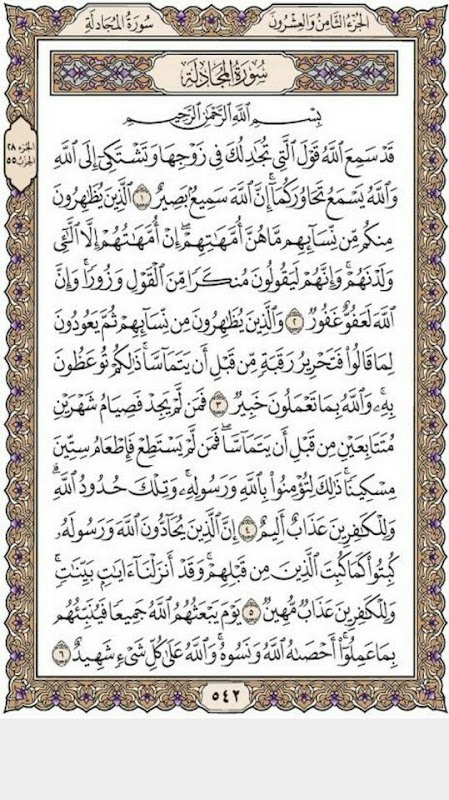 الجزء الثامن والعشرون
سورة المجادلة
سُورَةُ الْمُجَادِلَةِ
الجزء ٢٨
الحزب ٥٥
بِسْمِ اللَّهِ الرَّحْمَٰنِ الرَّحِيمِ
قَدْ سَمِعَ اللَّهُ قَوْلَ الَّتِي تُجَادِلُكَ فِي زَوْجِهَا وَتَشْتَكِي إِلَى اللَّهِ
وَاللَّهُ يَسْمَعُ تَحَاوُرَكُمَا ۚ إِنَّ اللَّهَ سَمِيعٌ بَصِيرٌ ١ الَّذِينَ يُظَاهِرُونَ
مِنكُم مِّن نِّسَائِهِم مَّا هُنَّ أُمَّهَاتِهِمْ ۖ إِنْ أُمَّهَاتُهُمْ إِلَّا اللَّائِي
وَلَدْنَهُمْ ۚ وَإِنَّهُمْ لَيَقُولُونَ مُنكَرًا مِّنَ الْقَوْلِ وَزُورًا ۚ وَإِنَّ
اللَّهَ لَعَفُوٌّ غَفُورٌ ٢ وَالَّذِينَ يُظَاهِرُونَ مِن نِّسَائِهِمْ ثُمَّ يَعُودُونَ
لِمَا قَالُوا فَتَحْرِيرُ رَقَبَةٍ مِّن قَبْلِ أَن يَتَمَاسَّا ۚ ذَٰلِكُمْ تُوعَظُونَ
بِهِ ۚ وَاللَّهُ بِمَا تَعْمَلُونَ خَبِيرٌ ٣ فَمَن لَّمْ يَجِدْ فَصِيَامُ شَهْرَيْنِ
مُتَتَابِعَيْنِ مِن قَبْلِ أَن يَتَمَاسَّا ۖ فَمَن لَّمْ يَسْتَطِعْ فَإِطْعَامُ سِتِّينَ
مِسْكِينًا ۚ ذَٰلِكَ لِتُؤْمِنُوا بِاللَّهِ وَرَسُولِهِ ۚ وَتِلْكَ حُدُودُ اللَّهِ ۗ
وَلِلْكَافِرِينَ عَذَابٌ أَلِيمٌ ٤ إِنَّ الَّذِينَ يُحَادُّونَ اللَّهَ وَرَسُولَهُ
كُبِتُوا كَمَا كُبِتَ الَّذِينَ مِن قَبْلِهِمْ ۚ وَقَدْ أَنزَلْنَا آيَاتٍ بَيِّنَاتٍ ۚ
وَلِلْكَافِرِينَ عَذَابٌ مُّهِينٌ ٥ يَوْمَ يَبْعَثُهُمُ اللَّهُ جَمِيعًا فَيُنَبِّئُهُم
بِمَا عَمِلُوا ۚ أَحْصَاهُ اللَّهُ وَنَسُوهُ ۚ وَاللَّهُ عَلَىٰ كُلِّ شَيْءٍ شَهِيدٌ ٦
٥٤٢